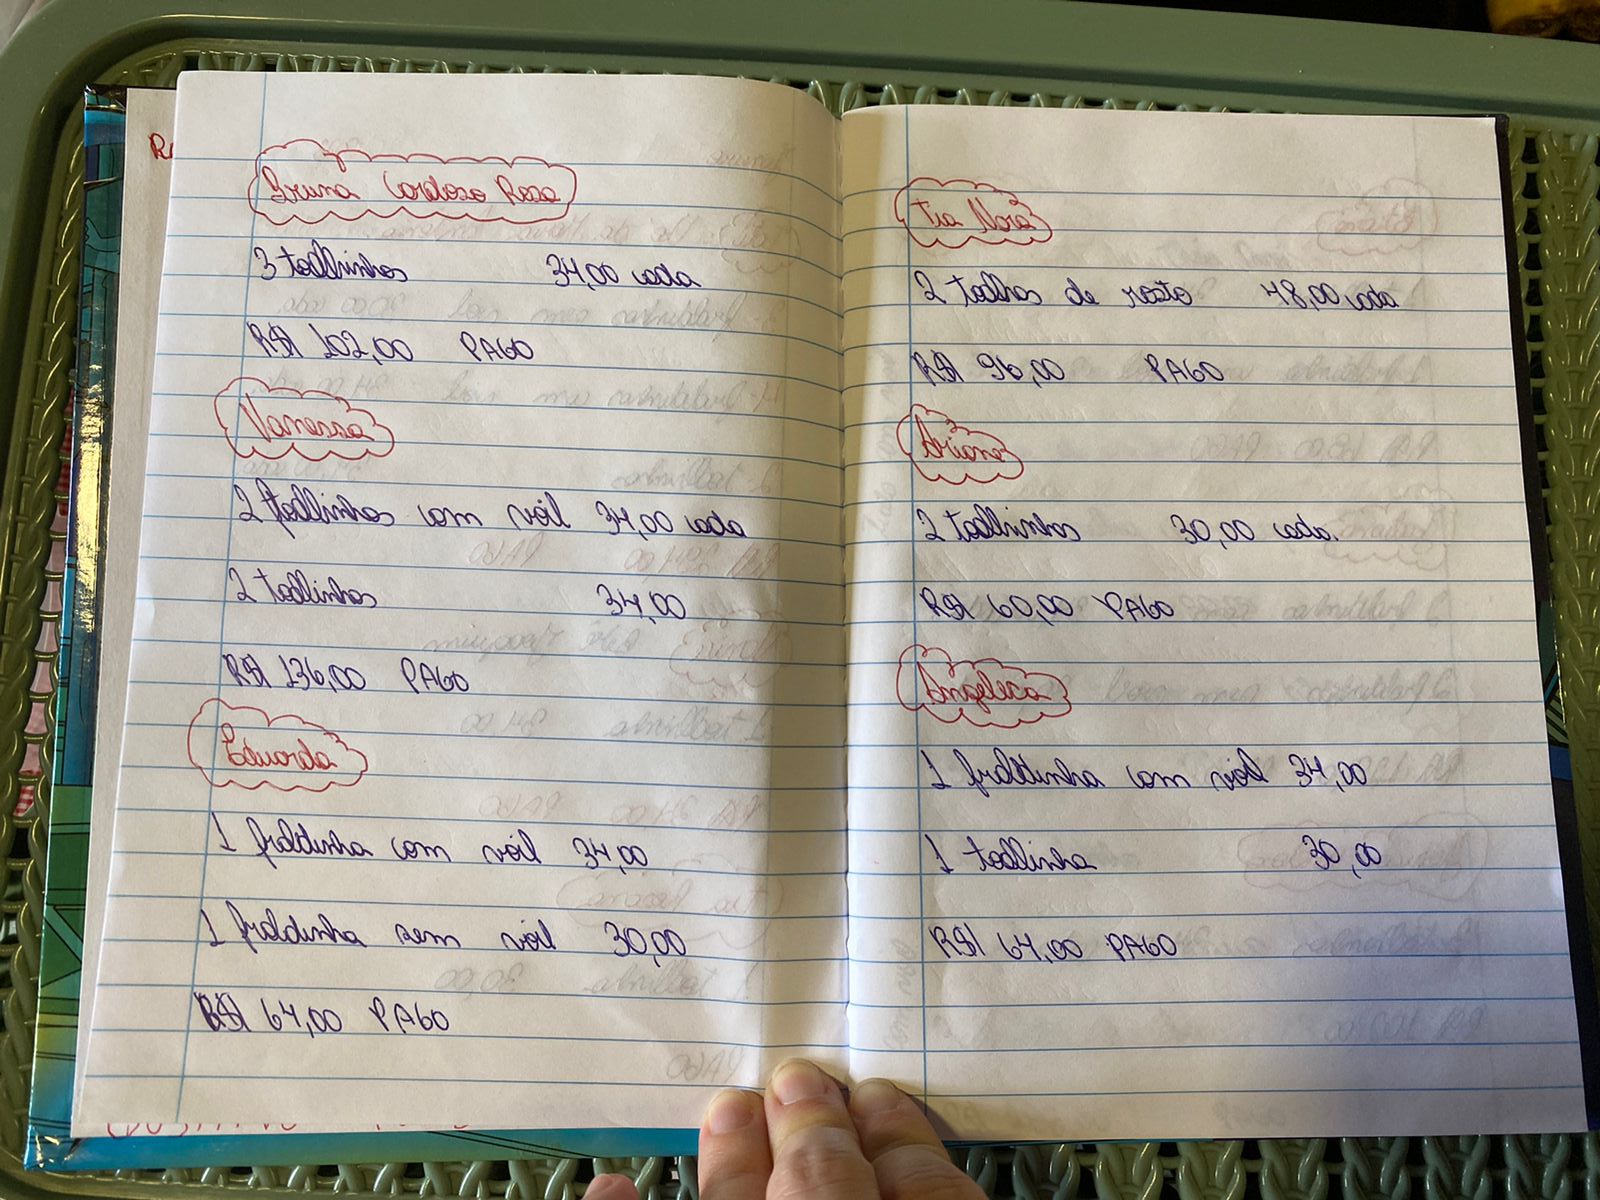 Bruna Cardoso Rosa
3 toalhinhas 34,00 cada
R$ 102,00 PAGO
Vanessa
2 fraldinhas com voil 34,00 cada
2 toalhinhas 34,00
R$ 136,00 PAGO
Eduarda
1 fraldinha com voil 34,00
1 fraldinha sem voil 30,00
R$ 64,00 PAGO
Tia Nora
2 toalhas de rosto 48,00 cada
R$ 96,00 PAGO
Ariane
2 toalhinhas 30,00 cada.
R$ 60,00 PAGO
Angelica
1 fraldinha com voil 34,00
1 toalhinha 30,00
R$ 64,00 PAGO